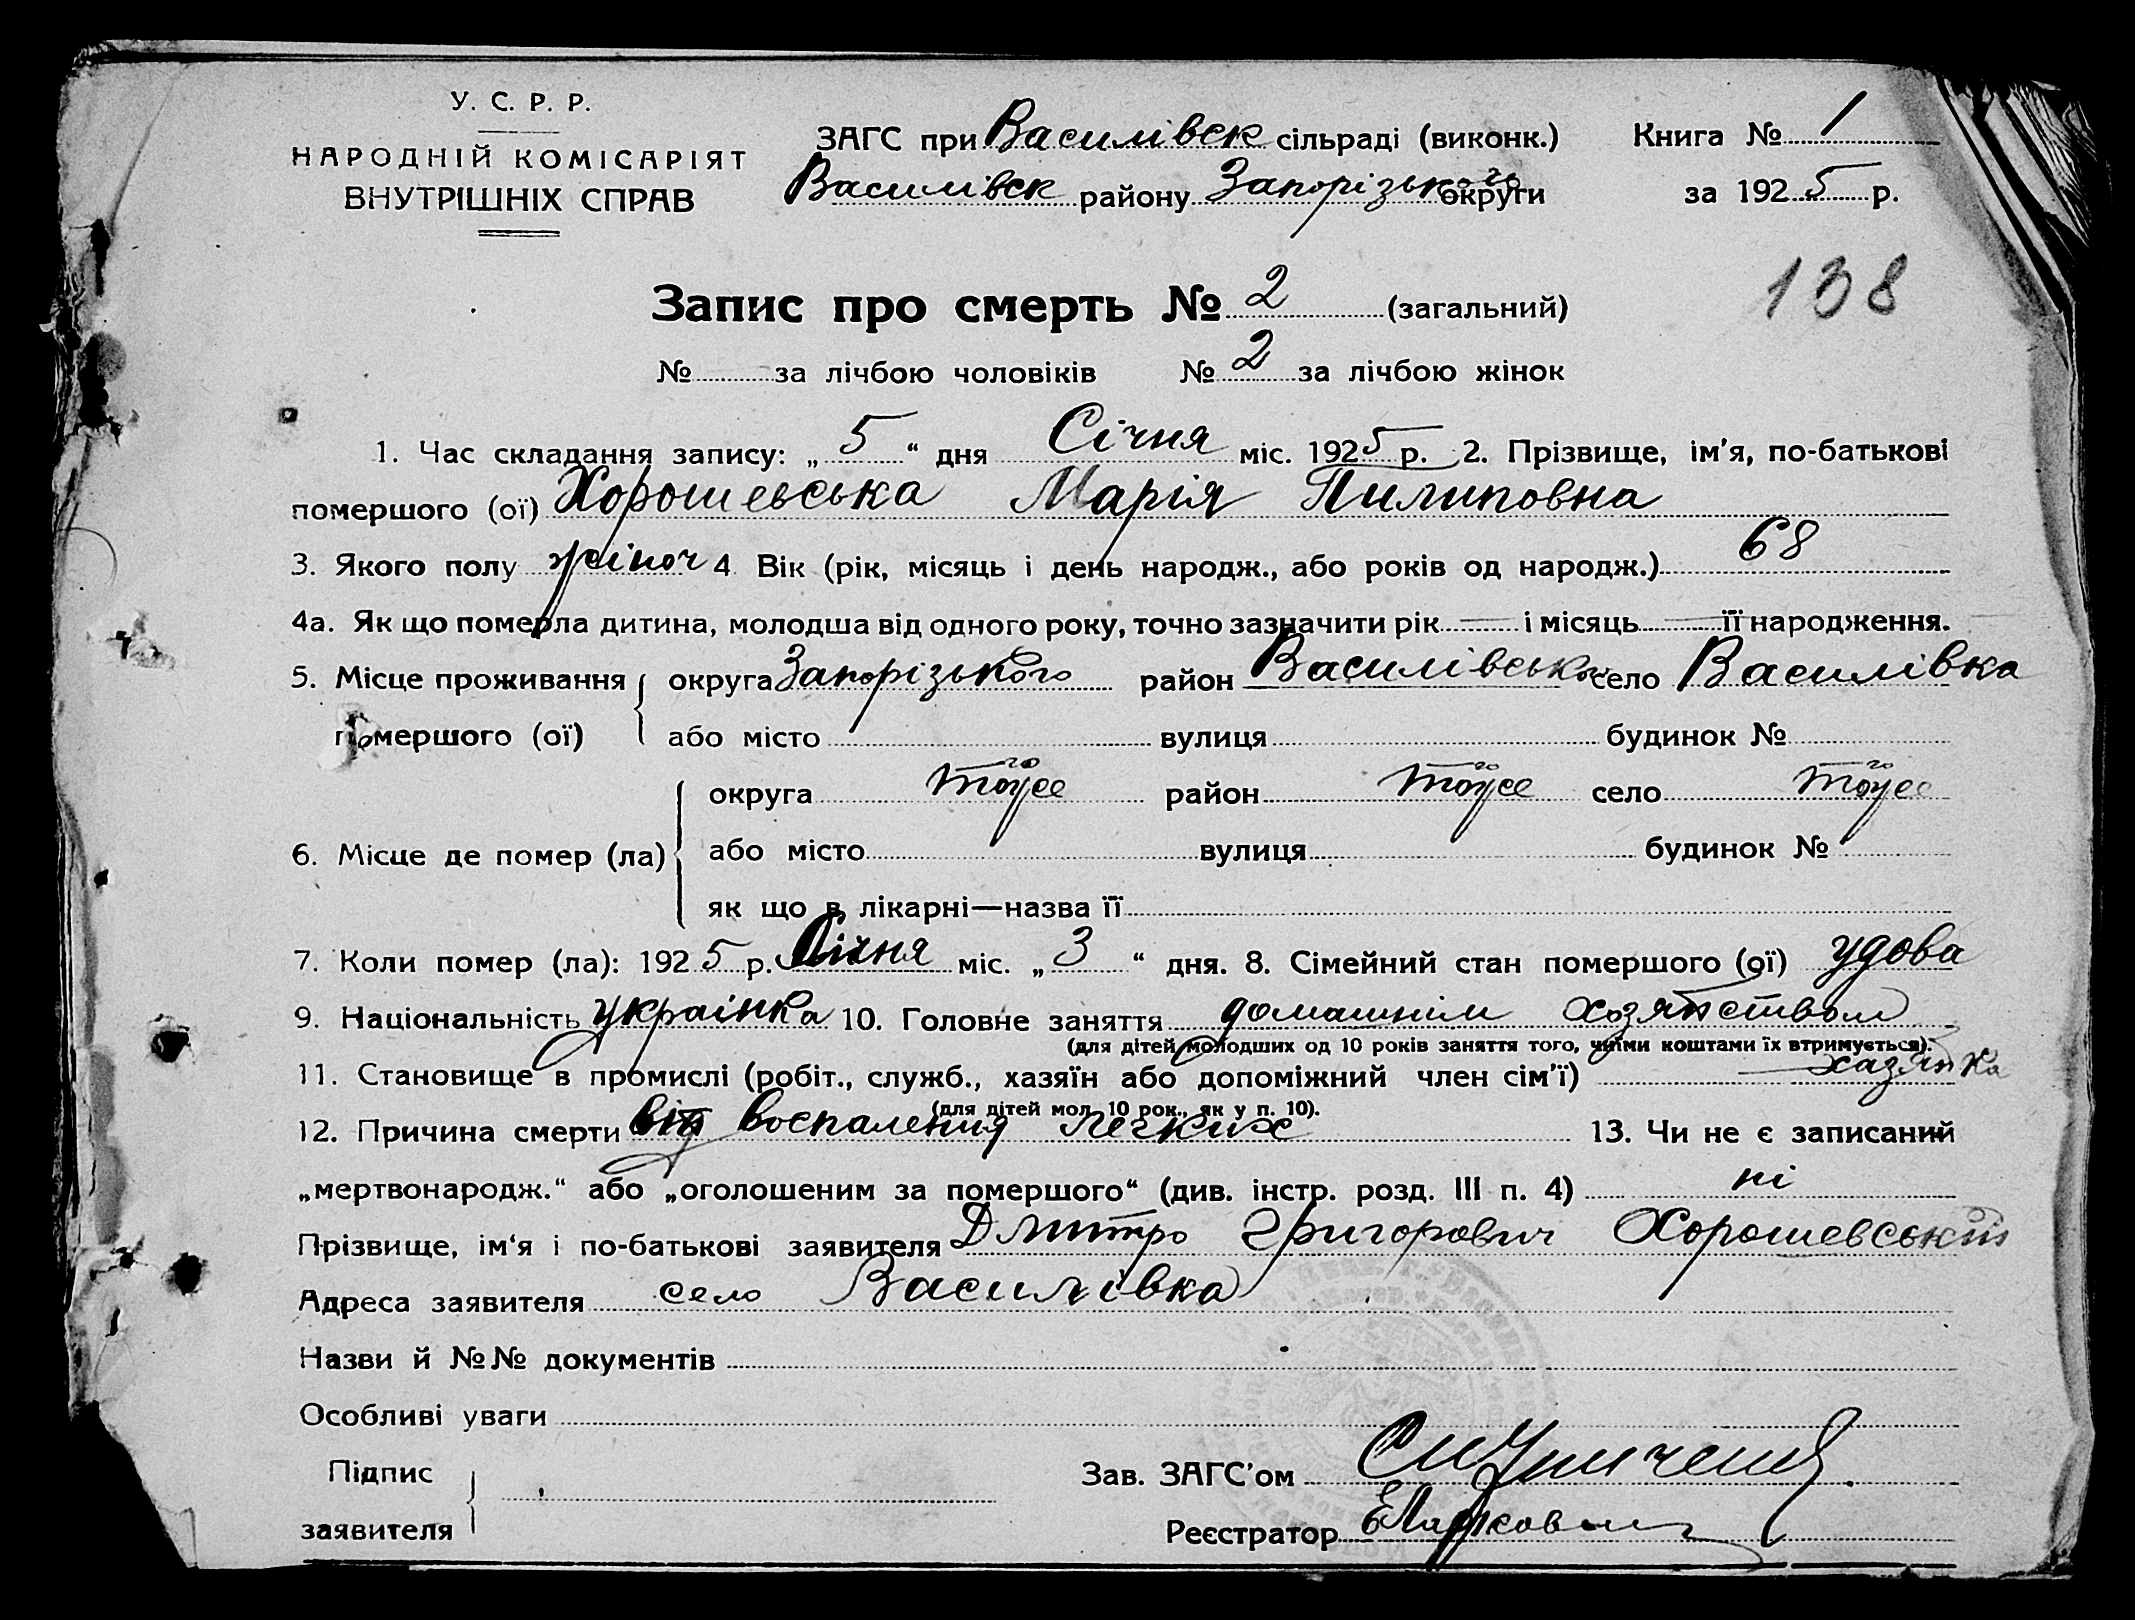 У. С. Р. Р.
НАРОДНІЙ КОМІСАРІЯТ
ВНУТРІШНІХ СПРАВ
ЗАГС при Василівск сільраді (виконк.)
Василівск району Запорізького округи
Книга № 1
за 1925 р.
138
Запис про смерть № 2 (загальний)
№ за лічбою чоловіків № 2 за лічбою жінок
1. Час складання запису: „5“ дня Січня міс. 1925 р. 2. Прізвище, ім'я, по-батькові
помершого (ої) Хорошевська Марія Пилиповна
3. Якого полу жіноч 4 Вік (рік, місяць і день народж., або років од народж.) 68
4а. Як що померла дитина, молодша від одного року, точно зазначити рік — і місяць — її народження.
5. Місце проживання округа Запорізького район Василівсько село Василівка
помершого (ої) або місто вулиця будинок №
округа тоусе го район тоусе го село тоусе го
6. Місце де помер (ла) або місто вулиця будинок №
як що в лікарні—назва її
7. Коли помер (ла): 1925 р. Січня міс. „3“ дня. 8. Сімейний стан помершого (ої) удова
9. Національність украінка 10. Головне заняття домашнім хозяйством
(для дітей молодших од 10 років заняття того, чиїми коштами їх втримується).
11. Становище в промислі (робіт., служб., хазяїн або допоміжний член сім'ї) — хазяйка
(для дітей мол. 10 рок., як у п. 10).
12. Причина смерти від воспаления легких 13. Чи не є записаний
„мертвонародж.“ або „оголошеним за помершого“ (див. інстр. розд. III п. 4) ні
Прізвище, ім'я і по-батькові заявителя Дмитро Григорович Хорошевський
Адреса заявителя село Василівка
Назви й №№ документів
Особливі уваги
Підпис
заявителя
Зав. ЗАГС'ом
Реєстратор